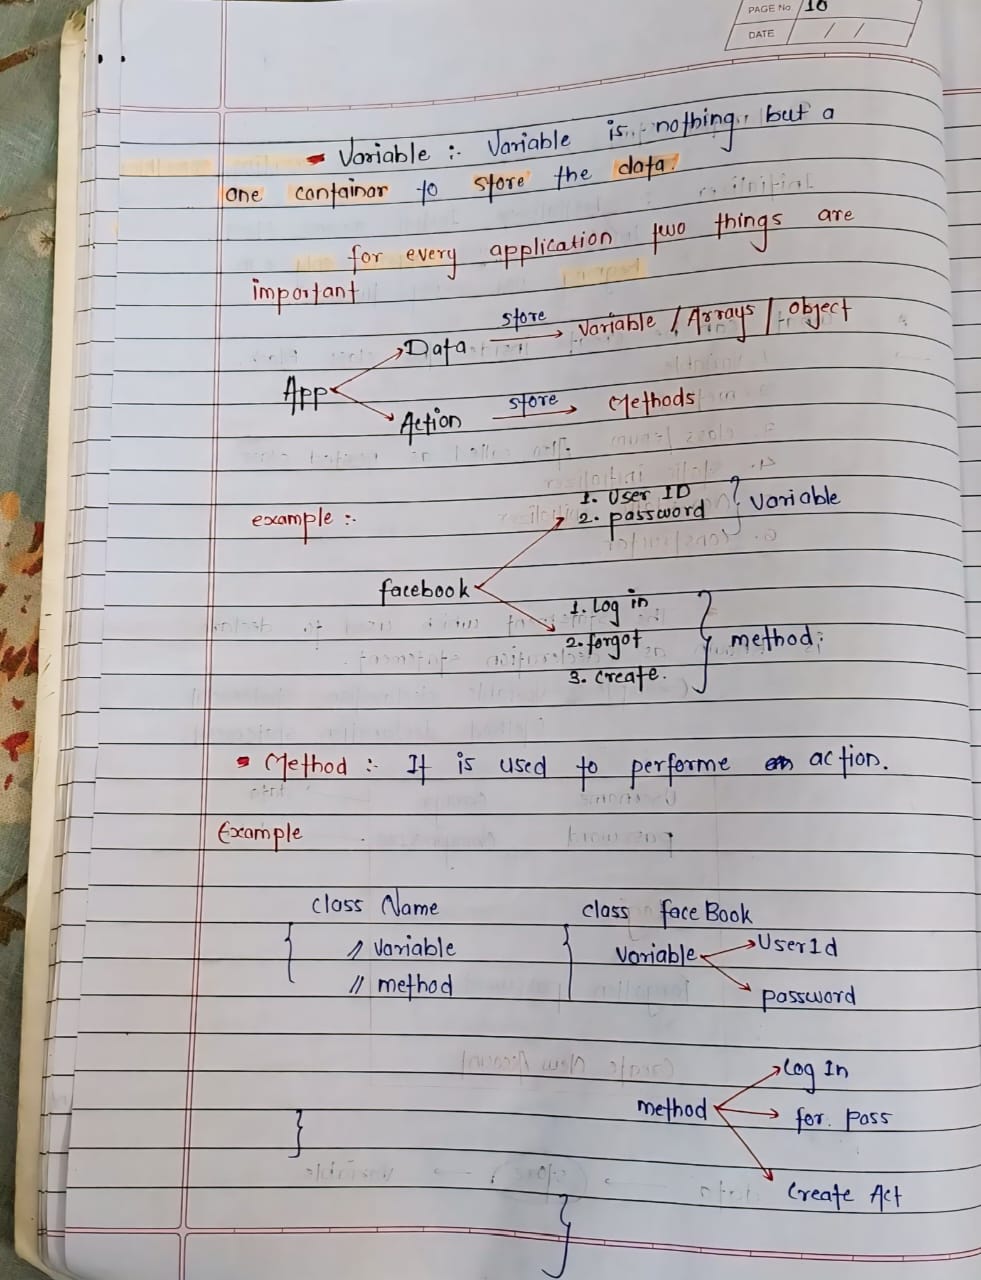 PAGE No. 10
DATE / /
Variable :- Variable is nothing but a
one container to store the data.
for every application two things are
important
App
Data store Variable / Arrays / object
Action store Methods
example :-
1. User ID
2. password
Variable
facebook
1. Log in
2. forgot
3. create.
method;
Method :- It is used to performe action.
Example
class Name
{
// variable
// method
}
class faceBook
{
Variable UserId
password
method Log In
for. pass
Create Act
}